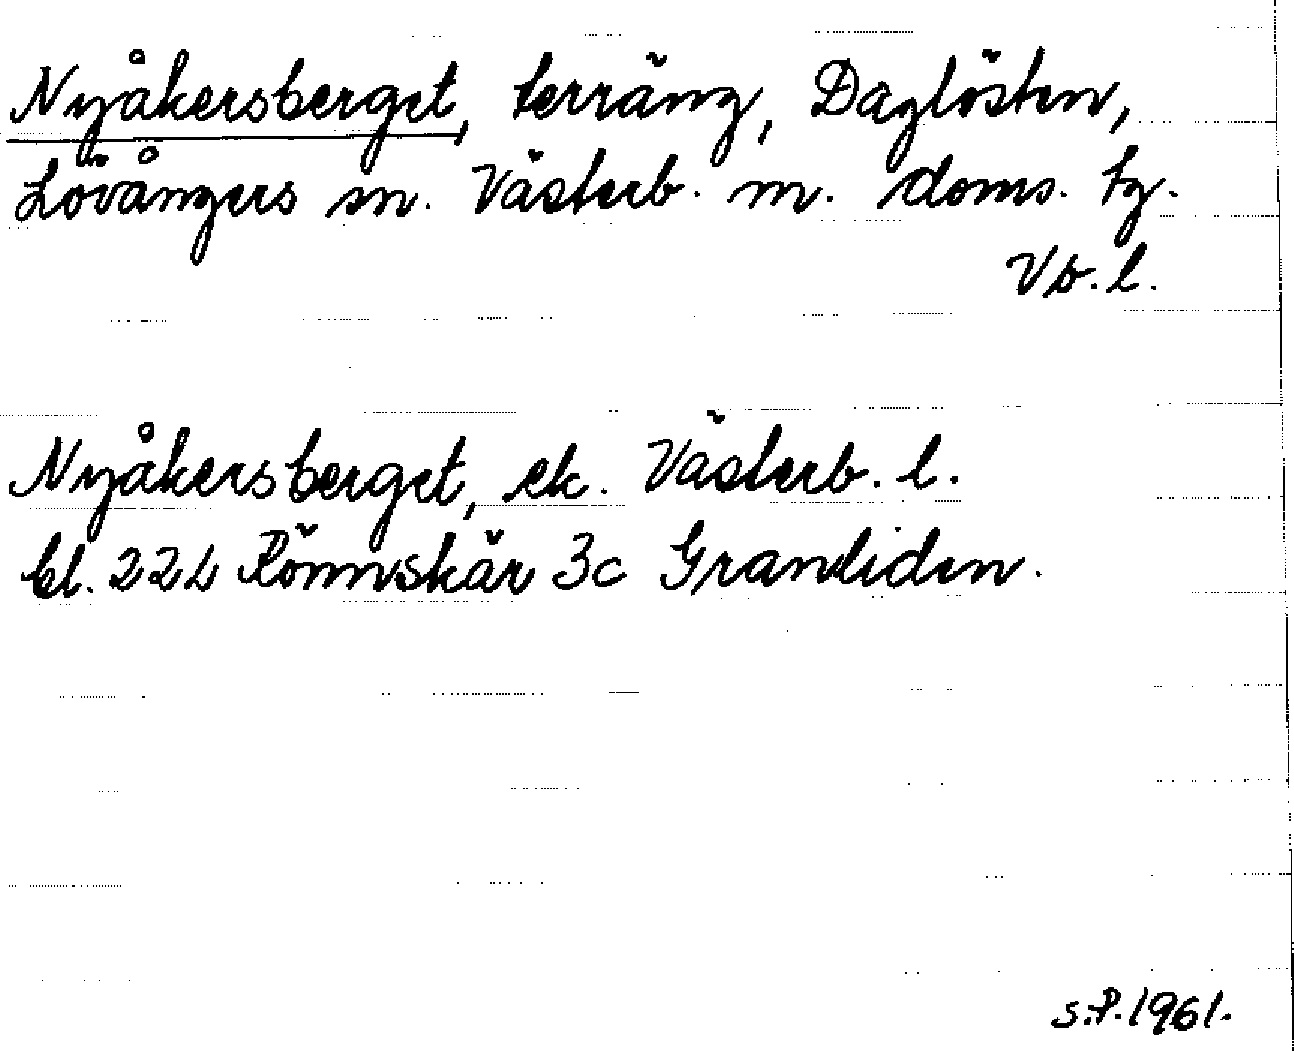 Nyåkersberget, terräng, Daglösten,
Lövångers sn. Västerb. m. doms. tg.
Vb. l.
Nyåkersberget, ek. Västerb. l.
bl. 22L Rönnskär 3c Granliden.
S.P. 1961.